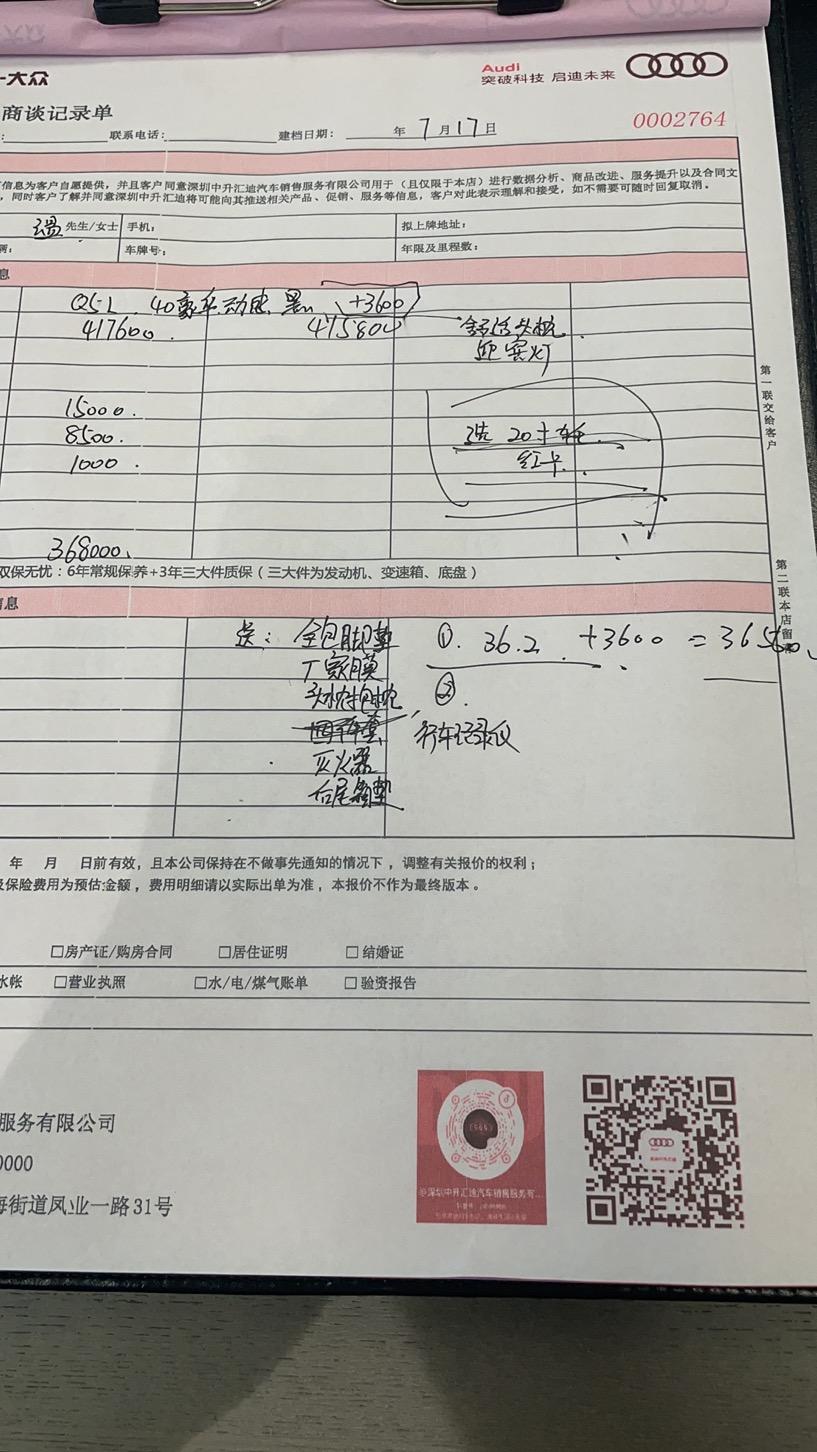 一大众
Audi
突破科技 启迪未来
商谈记录单
0002764
联系电话:
建档日期: 年 7 月 17 日
信息为客户自愿提供，并且客户同意深圳中升汇迪汽车销售服务有限公司用于（且仅限于本店）进行数据分析、商品改进、服务提升以及合同文
，同时客户了解并同意深圳中升汇迪将可能向其推送相关产品、促销、服务等信息，客户对此表示理解和接受，如不需要可随时回复取消。
温 先生/女士 手机: 拟上牌地址:
车牌号: 年限及里程数:
息
Q5L 40豪华动感 黑 +3600
417600. 415800 舒适头枕.
迎宾灯
15000.
8500. 送 20寸轮毂.
1000. 红卡.
368000.
第一联交给客户
双保无忧：6年常规保养+3年三大件质保（三大件为发动机、变速箱、底盘）
第二联本店留
信息
送: 全包脚垫 ①. 36.2 +3600 = 36560.
厂家膜
头枕抱枕 ②.
行车记录仪
灭火器
后尾箱垫
年 月 日前有效，且本公司保持在不做事先通知的情况下，调整有关报价的权利；
及保险费用为预估金额，费用明细请以实际出单为准，本报价不作为最终版本。
□房产证/购房合同 □居住证明 □结婚证
水帐 □营业执照 □水/电/煤气账单 □验资报告
服务有限公司
0000
海街道凤业一路31号
@深圳中升汇迪汽车销售服务有...